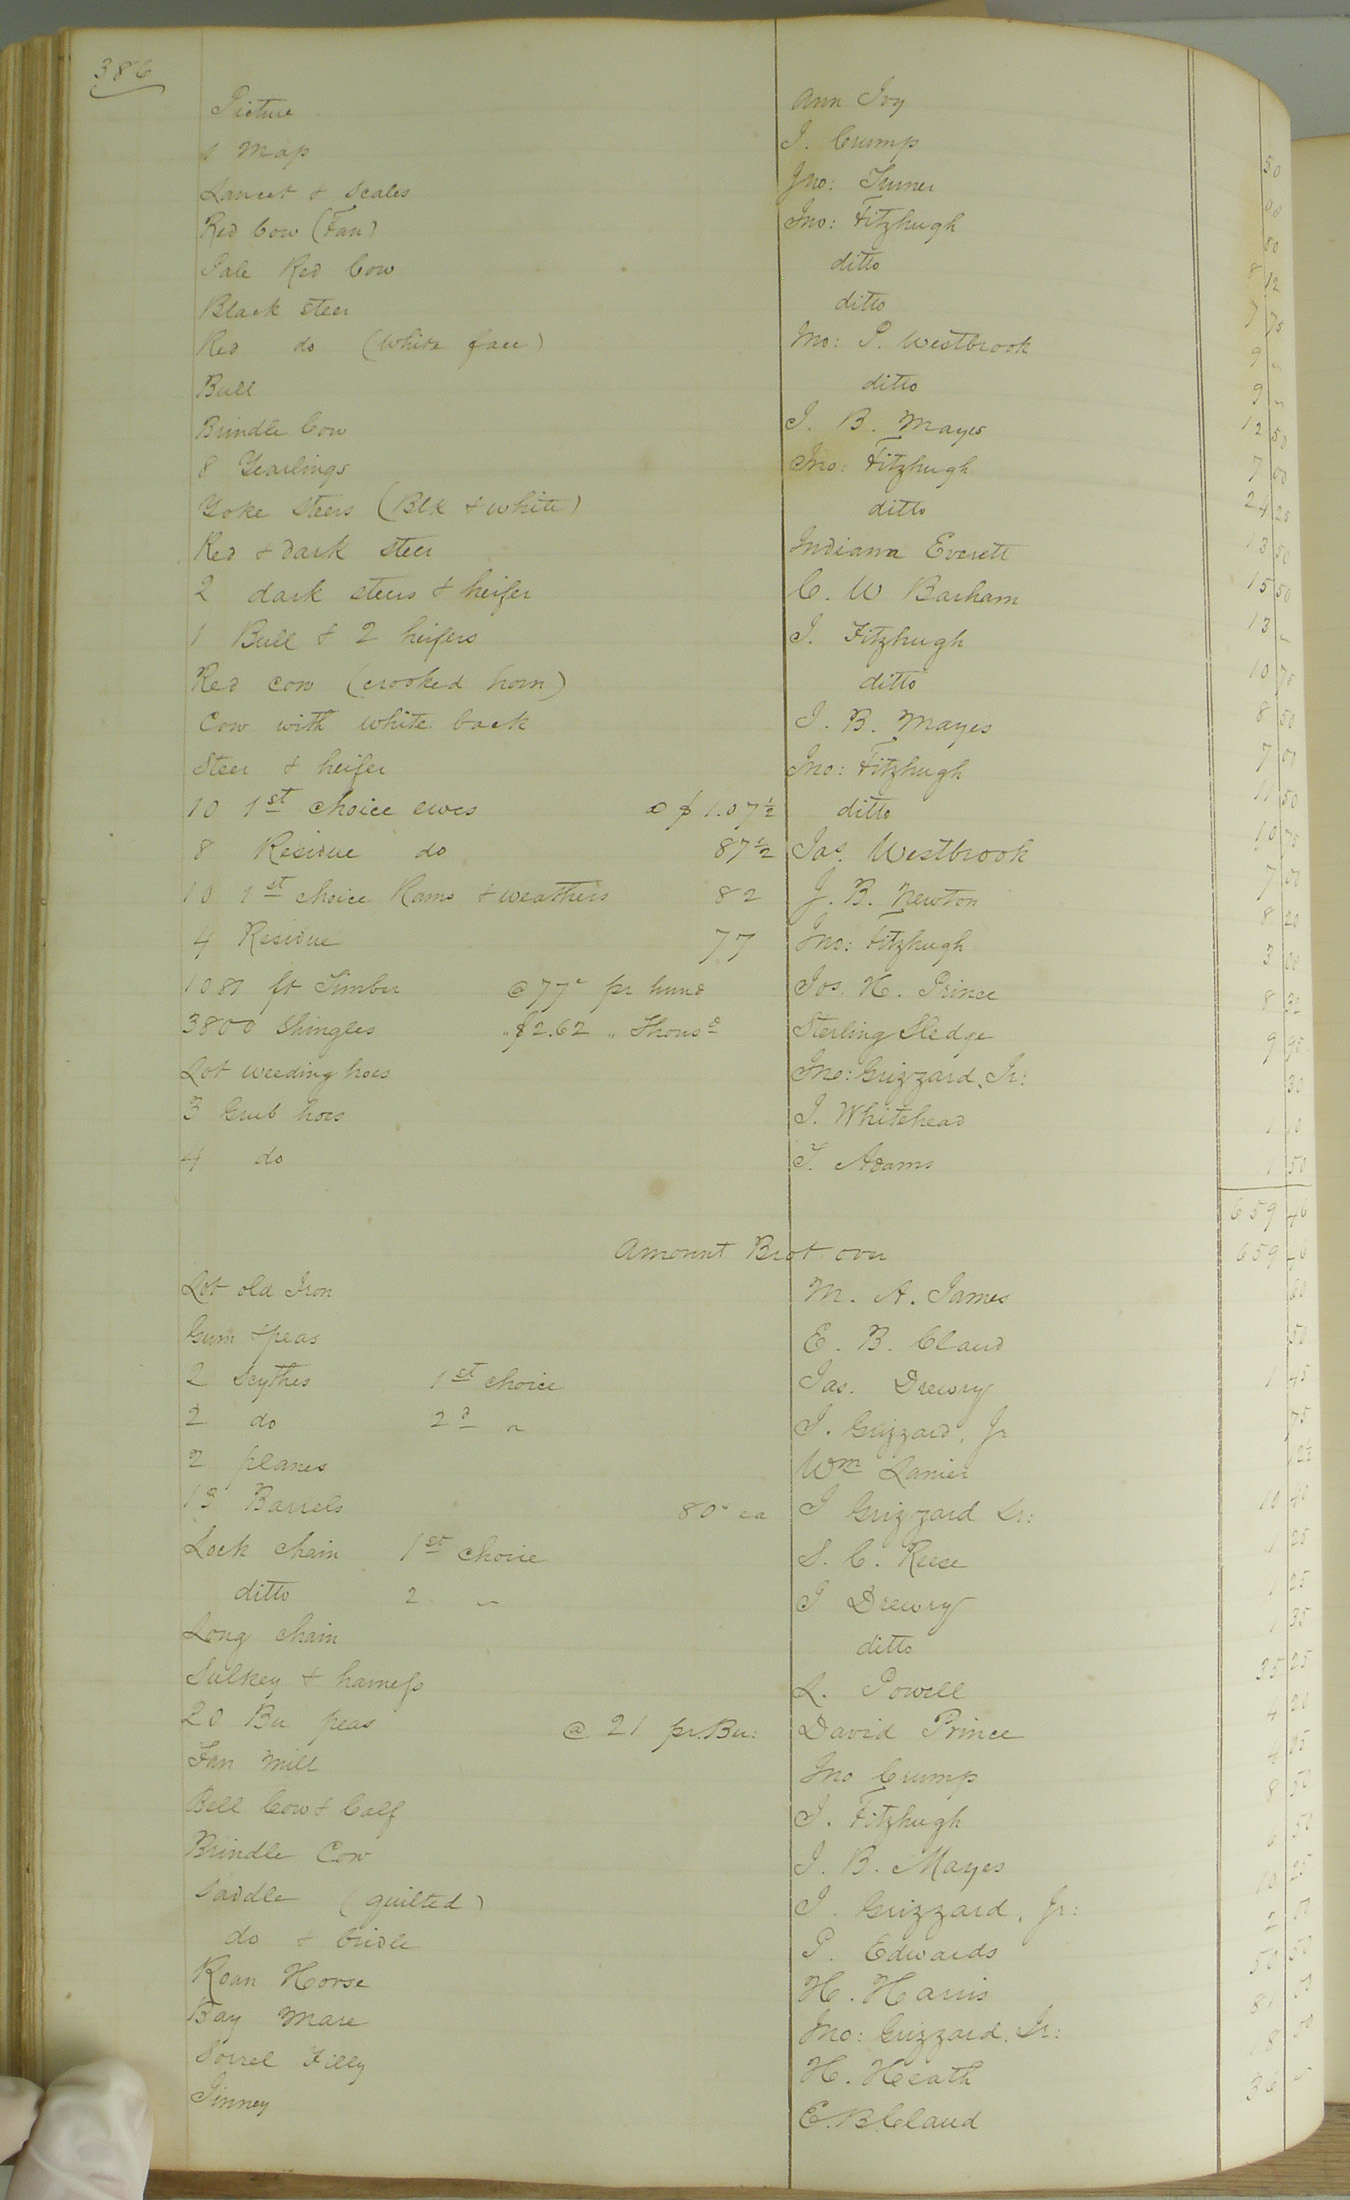 386
Picture Ann Ivy 50
1 Map J. Crump 00
Lancet & Scales Jno: Turner 80
Red Cow (Fan) Jno: Fitzhugh 8 12
Pale Red Cow ditto 7 75
Black steer ditto 9 "
Red do (White face) Jno: P. Westbrook 9 "
Bull ditto 12 50
Brindle Cow J. B. Mayes 7 00
8 Yearlings Jno: Fitzhugh 24 25
Yoke Steers (Blk & White) ditto 13 50
Red & dark steer Indiana Everett 15 50
2 dark steers & heifer C. W Barham 13 "
1 Bull & 2 heifers J. Fitzhugh 10 75
Red cow (crooked horn) ditto 8 50
Cow with white back J. B. Mayes 7 00
Steer & heifer Jno: Fitzhugh 11 50
10 1st choice ewes @ $1.07½ ditto 10 75
8 Residue do 87½ Jas. Westbrook 7 00
10 1st choice Rams & weathers 82 J. B. Newton 8 20
4 Residue 77 Jno: Fitzhugh 3 08
108 ft Timber @ 77c pr hund Jos. H. Prince 8 32
3800 Shingles " $2.62 " Thousd Sterling Sledge 9 95
Lot weeding hoes Jno: Grizzard, Jr: 30
3 Grub hoes J. Whitehead 1 10
4 do T. Adams 1 50
659 46
Amount Brot over 659 46
Lot old Iron M. A. James 60
Gum & peas E. B. Claud 50
2 Scythes 1st choice Jas. Drewry 1 45
2 do 2d " J. Grizzard, Jr 75
2 planes Wm Lanier 12½
13 Barrels 80c ea J Grizzard Sr: 10 40
Lock chain 1st choice S. C. Reese 1 25
ditto 2 " J Drewry 1 25
Long chain ditto 1 35
Sulkey & harness L. Powell 35 25
20 Bu peas @ 21 pr. Bu: David Prince 4 20
Fan Mill Jno Crump 4 05
Bell Cow & Calf J. Fitzhugh 8 50
Brindle Cow J. B. Mayes 6 50
Saddle (quilted) J. Grizzard, Jr: 10 25
do & bridle P. Edwards 2 50
Roan Horse H. Harris 50 50
Bay Mare Jno: Grizzard, Sr: 81 00
Sorrel Filly H. Heath 00
Jinney E. B. Claud 36 "